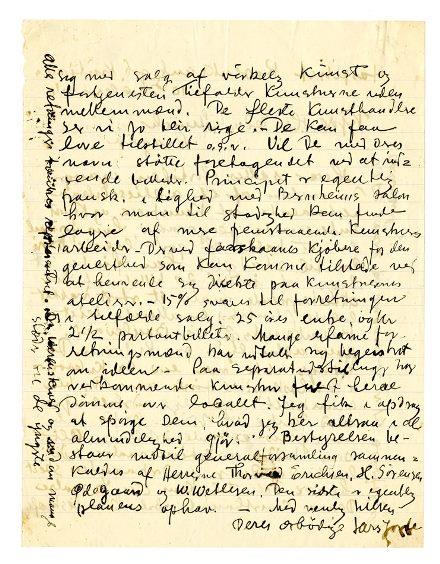 sig med salg af virkelig Kunst og
fortjenesten tilfalder Kunstnerne uden
mellemmænd. De fleste Kunsthandlere
ser vi jo blir rige. De kan faa
love tilstillet o.s.v. Vil De med Deres
navn støtte foretagendet ved at
sende billeder. Princippet er egentlig
fransk, i lighed med Bernheims salon
hvor man til stadighed kan finde
af mere fremstaaende Kunstneres
arbeider. Derved Kjøbere for den
generthed som kan komme tilstæde ved
at henvende sig direkte paa Kunstnernes
atelier. 15% svares til forretningen
i tilfælde salg. 25 øres entre, og kr
2½ partoutbillets. Mange erfarne for-
retningsmænd har udtalt sig begeistret
om ideen. Paa Separatudstilling har
vedkommende Kunstner fuldt herre-
dømme over localet. Jeg fik i opdrag
at spørge Dem, hvad jeg her altsaa i al
almindelighed gjør. Bestyrelsen be-
staar indtil generalforsamling sammen-
kaldes af Herrerne Thorvald Erichsen, H. Sørensen
Ødegaard og W. Wetlesen. Den sidste er egentlig
planens ophav. Med venlig hilsen
Deres ærbødige Lars Jorde
alle retninger
og
støtte til de yngste